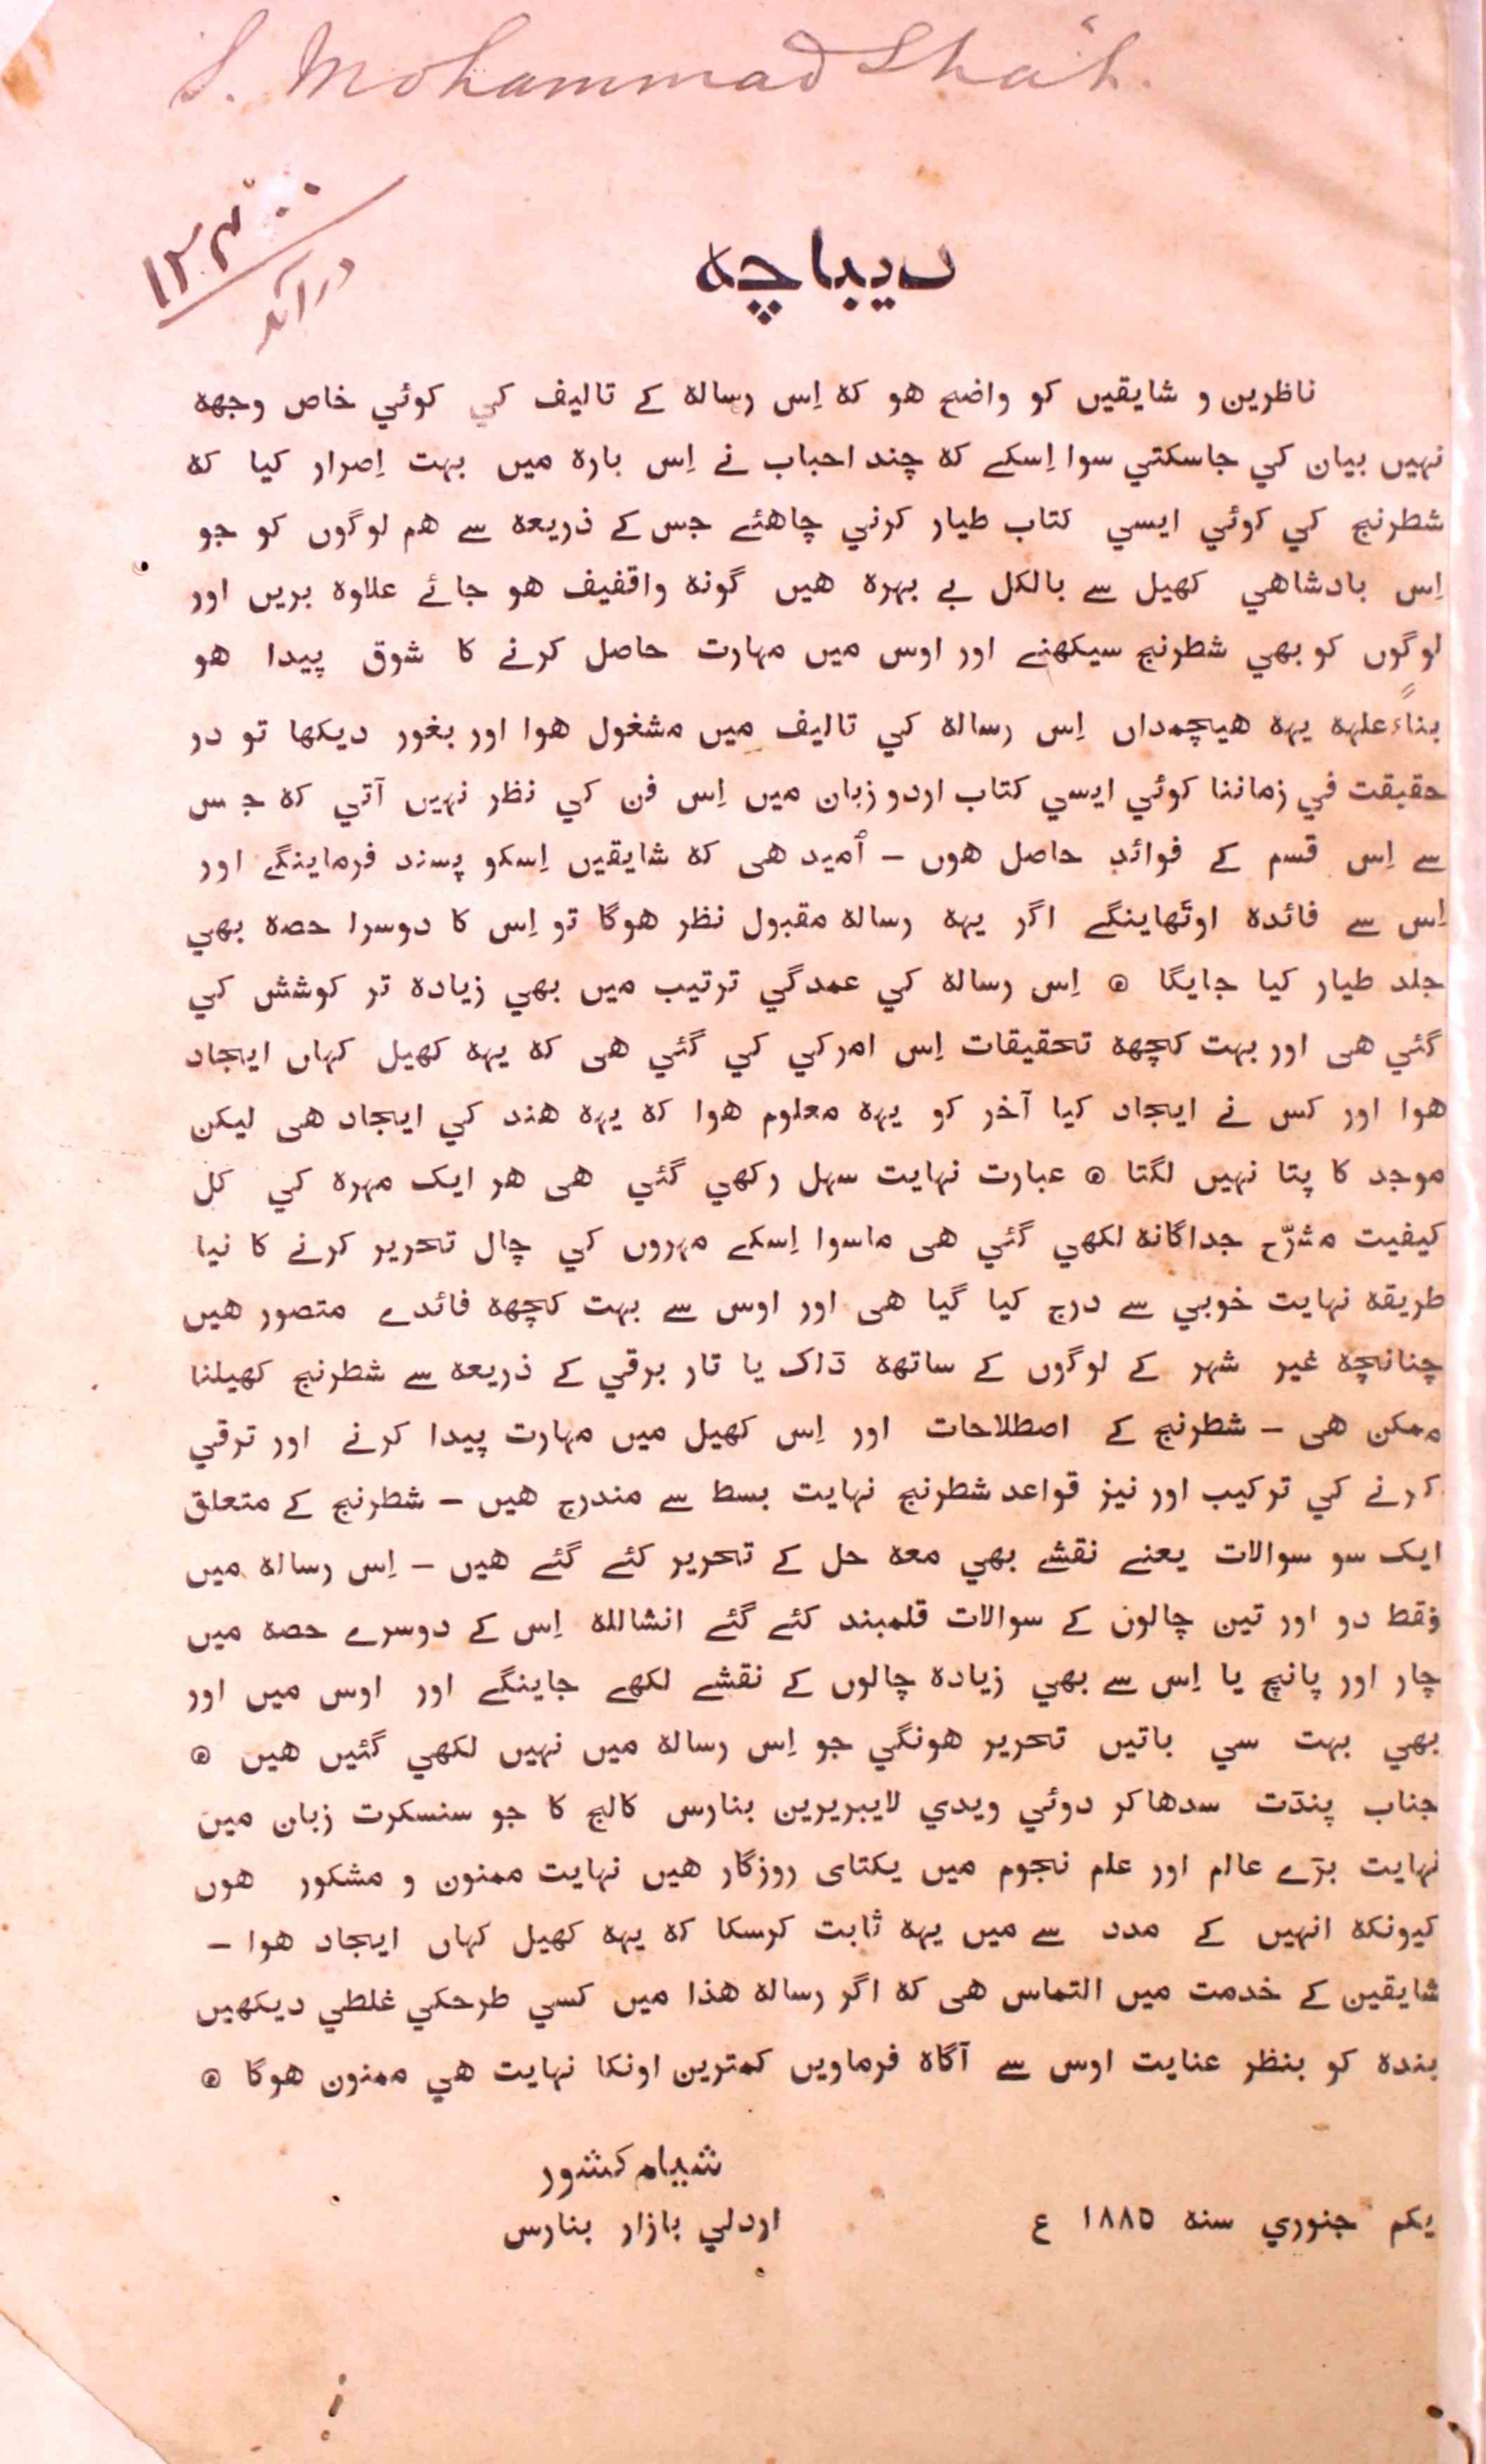 S. Mohammad Shah.
درآمد
دیباچه
ناظرین و شایقیں کو واضح هو که اِس رساله کے تالیف کي کوئي خاص وجهه
نہیں بیان کي جاسکتي سوا اِسکے که چند احباب نے اِس باره میں بہت اِصرار کیا که
شطرنج کي کوئي ایسي کتاب طیار کرني چاهئے جس کے ذریعه سے هم لوگوں کو جو
اِس بادشاهي کھیل سے بالکل بے بہره هیں گونه واقفیف هو جائے علاوه بریں اور
لوگوں کو بھي شطرنج سیکھنے اور اوس میں مہارت حاصل کرنے کا شوق پیدا هو
بناءً علہه یہه هیچمداں اِس رساله کي تالیف میں مشغول هوا اور بغور دیکھا تو در
حقبقت في زماننا کوئي ایسي کتاب اردو زبان میں اِس فن کي نظر نہیں آتي که جس
سے اِس قسم کے فوائد حاصل هوں — اُمید هی که شایقیں اِسکو پسند فرماینگے اور
اِس سے فائده اوٹھاینگے اگر یہه رساله مقبول نظر هوگا تو اِس کا دوسرا حصه بھي
جلد طیار کیا جایگا ۞ اِس رساله کي عمدگي ترتیب میں بھي زیاده تر کوشش کي
گئي هی اور بہت کچھه تحقیقات اِس امر کي کي گئي هی که یہه کھیل کہاں ایجاد
هوا اور کس نے ایجاد کیا آخر کو یہه معلوم هوا که یہه هند کي ایجاد هی لیکن
موجد کا پتا نہیں لگتا ۞ عبارت نہایت سہل رکھي گئي هی هر ایک مہره کي کل
کیفیت مشرّح جداگانه لکھي گئي هی ماسوا اِسکے مہروں کي چال تحریر کرنے کا نیا
طریقه نہایت خوبي سے درج کیا گیا هی اور اوس سے بہت کچھه فائدے متصور هیں
چنانچه غیر شہر کے لوگوں کے ساتھه ڈاک یا تار برقي کے ذریعه سے شطرنج کھیلنا
ممکن هی — شطرنج کے اصطلاحات اور اِس کھیل میں مہارت پیدا کرنے اور ترقي
کرنے کي ترکیب اور نیز قواعد شطرنج نہایت بسط سے مندرج هیں — شطرنج کے متعلق
ایک سو سوالات یعنے نقشے بھي معه حل کے تحریر کئے گئے هیں — اِس رساله میں
فقط دو اور تین چالوں کے سوالات قلمبند کئے گئے انشالله اِس کے دوسرے حصه میں
چار اور پانچ یا اِس سے بھي زیاده چالوں کے نقشے لکھے جاینگے اور اوس میں اور
بھي بہت سي باتیں تحریر هونگي جو اِس رساله میں نہیں لکھي گئیں هیں ۞
جناب پنڈت سدھاکر دوئي ویدي لایبریرین بنارس کالج کا جو سنسکرت زبان میں
نہایت بڑے عالم اور علم نجوم میں یکتای روزگار هیں نہایت ممنون و مشکور هوں
کیونکه انہیں کے مدد سے میں یہه ثابت کرسکا که یہه کھیل کہاں ایجاد هوا —
شایقین کے خدمت میں التماس هی که اگر رساله هذا میں کسي طرحکي غلطي دیکھیں
بنده کو بنظر عنایت اوس سے آگاه فرماویں کمترین اونکا نہایت هي ممنون هوگا ۞
شیام کشور
یکم جنوري سنه ١٨٨٥ ع
اردلي بازار بنارس